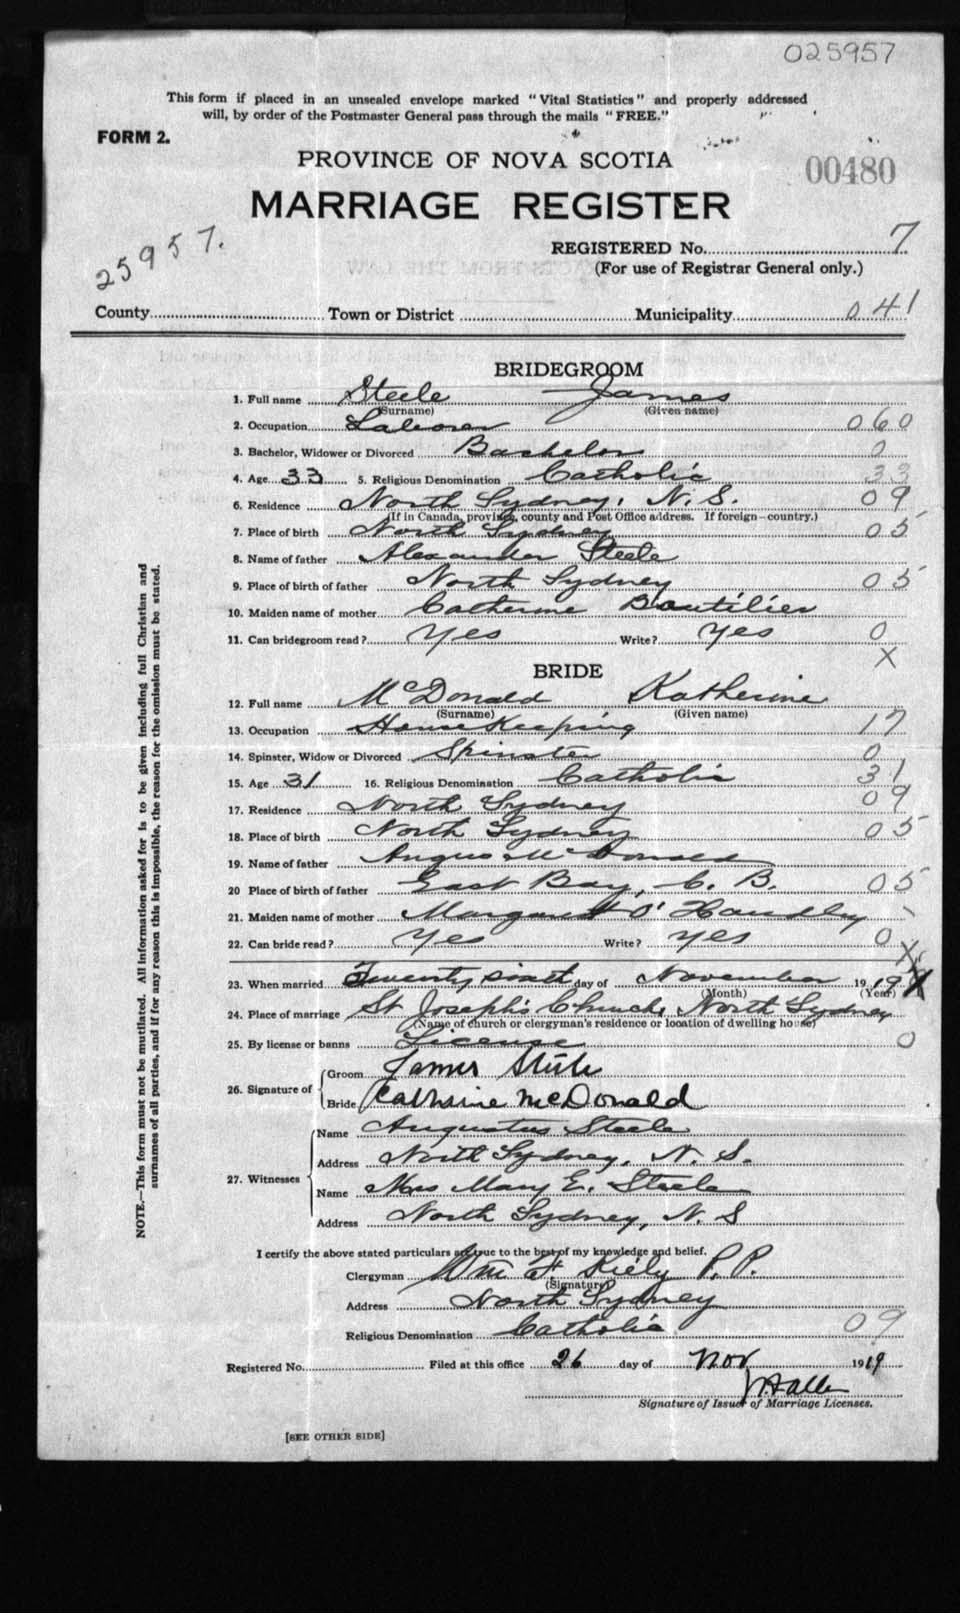 025957
This form if placed in an unsealed envelope marked "Vital Statistics" and properly addressed
will, by order of the Postmaster General pass through the mails "FREE."
FORM 2.
PROVINCE OF NOVA SCOTIA
00480
MARRIAGE REGISTER
25957.
REGISTERED No. 7
(For use of Registrar General only.)
County Town or District Municipality 041
BRIDEGROOM
1. Full name Steele James
(Surname) (Given name)
2. Occupation Laborer 060
3. Bachelor, Widower or Divorced Bachelor 0
4. Age 33 5. Religious Denomination Catholic 33
6. Residence North Sydney, N. S. 09
(If in Canada, province, county and Post Office address. If foreign—country.)
7. Place of birth North Sydney 05
8. Name of father Alexander Steele
9. Place of birth of father North Sydney 05
10. Maiden name of mother Catherine Boutilier
11. Can bridegroom read? Yes Write? Yes 0
X
BRIDE
12. Full name McDonald Katherine
(Surname) (Given name)
13. Occupation House Keeping 17
14. Spinster, Widow or Divorced Spinster 0
15. Age 31 16. Religious Denomination Catholic 31
17. Residence North Sydney 09
18. Place of birth North Sydney 05
19. Name of father Angus McDonald
20 Place of birth of father East Bay, C. B. 05
21. Maiden name of mother Margaret O'Handley
22. Can bride read? Yes Write? Yes 0
X
23. When married Twenty sixth day of November 1919
(Month) (Year)
24. Place of marriage St Joseph's Church, North Sydney
(Name of church or clergyman's residence or location of dwelling house)
25. By license or banns License 0
26. Signature of Groom James Steele
Bride Catherine McDonald
27. Witnesses Name Augustus Steele
Address North Sydney, N. S.
Name Mrs Mary E. Steele
Address North Sydney, N. S
I certify the above stated particulars are true to the best of my knowledge and belief.
Clergyman Wm F. Kiely P. P.
(Signature)
Address North Sydney
Religious Denomination Catholic 09
Registered No. Filed at this office 26 day of Nov 1919
Signature of Issuer of Marriage Licenses.
[SEE OTHER SIDE]
NOTE.—This form must not be mutilated. All information asked for is to be given including full Christian and
surnames of all parties, and if for any reason this is impossible, the reason for the omission must be stated.